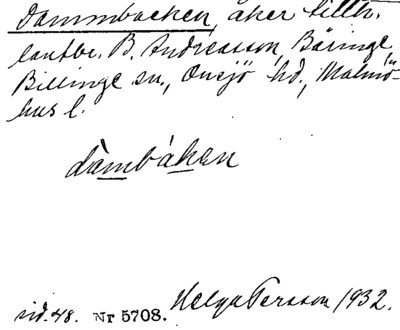 Dammbacken, åker tillh.
lantbr. B. Andreasson, Bäringe,
Billinge sn., Onsjö hd., Malmö-
hus l.
dàmbàken
sid. 48. Nr 5708. Helga Persson 1932.